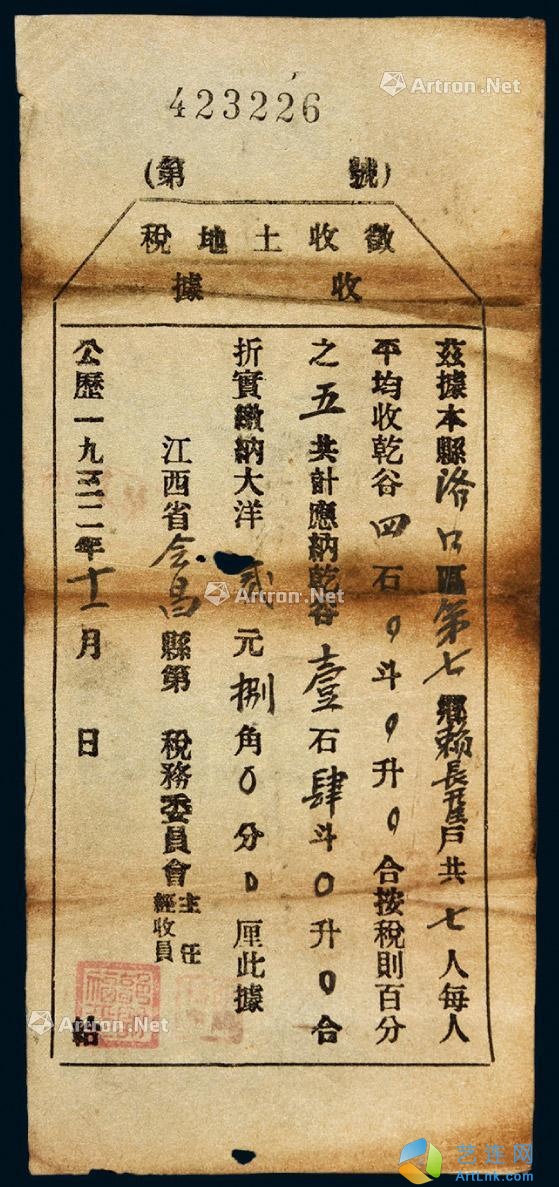 423226
(第 號)
徵收土地稅
收據
茲據本縣洛口區第七鄉賴長 戶共七人每人
平均收乾谷四石0斗0升0合按稅則百分
之五共計應納乾谷壹石肆斗0升0合
折實繳納大洋貳元捌角0分0厘此據
江西省會昌縣第 稅務委員會主任
經收員
公歷一九三二年十一月 日 給
Artron.Net
Artron.Net
Artron.Net
Artron.Net
艺连网
ArtLnk.com